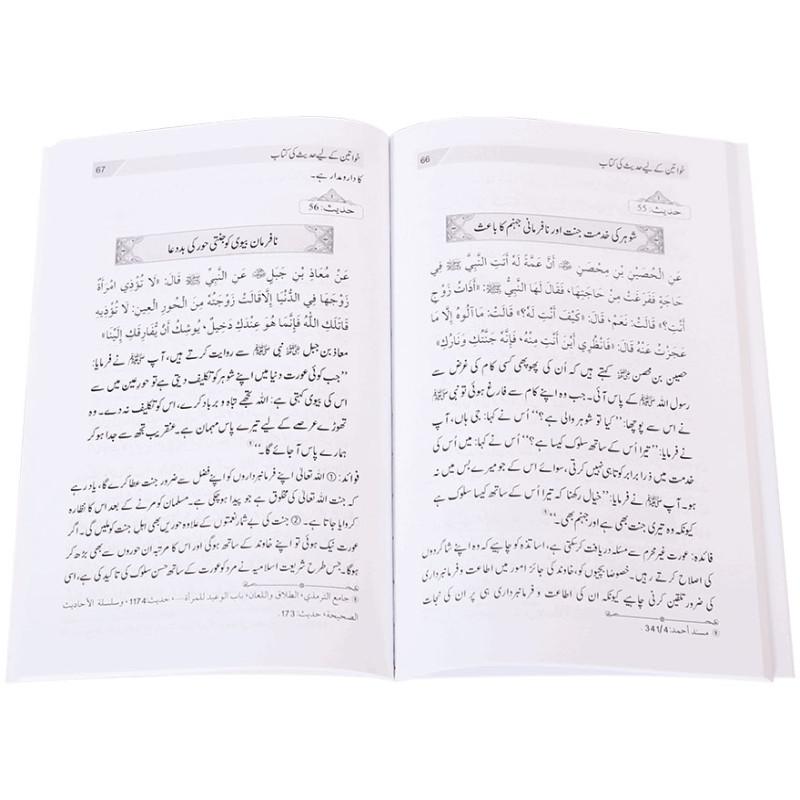 66
خواتین کے لیے حدیث کی کتاب
حدیث: 55
شوہر کی خدمت جنت اور نافرمانی جہنم کا باعث
عَنِ الْحُصَيْنِ بْنِ مِحْصَنٍ ؓ أَنَّ عَمَّةً لَهُ أَتَتِ النَّبِيَّ ﷺ فِي
حَاجَةٍ فَفَرَغَتْ مِنْ حَاجَتِهَا، فَقَالَ لَهَا النَّبِيُّ ﷺ: «أَذَاتُ زَوْجٍ
أَنْتِ؟» قَالَتْ: نَعَمْ، قَالَ: «كَيْفَ أَنْتِ لَهُ؟» قَالَتْ: مَا آلُوهُ إِلَّا مَا
عَجَزْتُ عَنْهُ قَالَ: «فَانْظُرِي أَيْنَ أَنْتِ مِنْهُ، فَإِنَّهُ جَنَّتُكِ وَنَارُكِ»
حصین بن محصن ؓ کہتے ہیں کہ اُن کی پھوپھی کسی کام کی غرض سے
رسول اللہ ﷺ کے پاس آئی۔ جب وہ اپنے کام سے فارغ ہوئی تو نبی ﷺ
نے اس سے پوچھا: ”کیا تو شوہر والی ہے؟“ اُس نے کہا: جی ہاں، آپ
نے فرمایا: ”تیرا اُس کے ساتھ سلوک کیسا ہے؟“ اُس نے کہا: میں اُس کی
خدمت میں ذرا برابر کوتاہی نہیں کرتی، سوائے اس کے جو میرے بس میں نہ
ہو۔ آپ ﷺ نے فرمایا: ”خیال رکھنا کہ تیرا اُس کے ساتھ کیسا سلوک ہے
کیونکہ وہ تیری جنت بھی ہے اور جہنم بھی۔“ ①
فائدہ: عورت غیر محرم سے مسئلہ دریافت کر سکتی ہے، اساتذہ کو چاہیے کہ وہ اپنے شاگردوں
کی اصلاح کرتے رہیں۔ خصوصاً بچیوں کو، خاوند کی جائز امور میں اطاعت و فرمانبرداری
کی ضرور تلقین کرنی چاہیے کیونکہ ان کی اطاعت و فرمانبرداری ہی پر ان کی نجات
① مسند أحمد: 341/4.
67
خواتین کے لیے حدیث کی کتاب
کا دارومدار ہے۔
حدیث: 56
نافرمان بیوی کو جنتی حور کی بددعا
عَنْ مُعَاذِ بْنِ جَبَلٍ ؓ عَنِ النَّبِيِّ ﷺ قَالَ: «لَا تُؤْذِي امْرَأَةٌ
زَوْجَهَا فِي الدُّنْيَا إِلَّا قَالَتْ زَوْجَتُهُ مِنَ الْحُورِ الْعِينِ: لَا تُؤْذِيهِ
قَاتَلَكِ اللَّهُ فَإِنَّمَا هُوَ عِنْدَكِ دَخِيلٌ، يُوشِكُ أَنْ يُفَارِقَكِ إِلَيْنَا»
معاذ بن جبل ؓ نبی ﷺ سے روایت کرتے ہیں، آپ ﷺ نے فرمایا:
”جب کوئی عورت دنیا میں اپنے شوہر کو تکلیف دیتی ہے تو حورعین میں سے
اس کی بیوی کہتی ہے: اللہ تجھے تباہ و برباد کرے، اس کو تکلیف نہ دے۔ وہ
تھوڑے عرصے کے لیے تیرے پاس مہمان ہے۔ عنقریب تجھ سے جدا ہو کر
ہمارے پاس آ جائے گا۔“ ①
فوائد: ① اللہ تعالیٰ اپنے فرمانبرداروں کو اپنے فضل سے ضرور جنت عطا کرے گا، یاد رہے
کہ جنت اللہ تعالیٰ کی مخلوق ہے جو پیدا ہو چکی ہے۔ مسلمان کو مرنے کے بعد اس کا نظارہ
کروایا جاتا ہے۔ ② جنت کی بے شمار نعمتوں کے علاوہ حوریں بھی اہل جنت کو ملیں گی۔ اگر
عورت نیک ہوئی تو اپنے خاوند کے ساتھ ہوگی اور اس کا مرتبہ ان حوروں سے بھی بڑھ کر
ہوگا۔ جس طرح شریعت اسلامیہ نے مرد کو عورت کے ساتھ حسن سلوک کی تاکید کی ہے، اسی
① جامع الترمذي، الطلاق واللعان، باب الوعيد للمرأة...، حديث: 1174، وسلسلة الأحاديث
الصحيحة، حديث: 173.